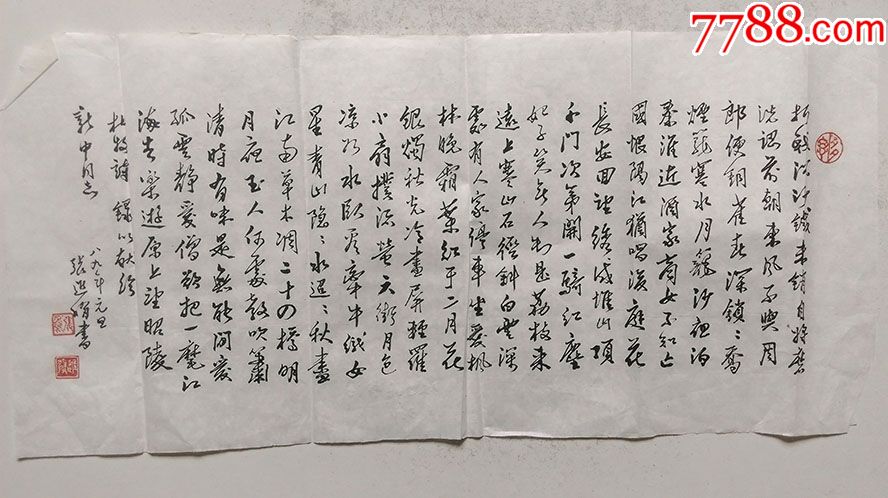 7788.com
折戟沉沙鐵未銷自將磨
洗認前朝東風不與周
郎便銅雀春深鎖二喬
煙籠寒水月籠沙夜泊
秦淮近酒家商女不知亡
國恨隔江猶唱後庭花
長安回望繡成堆山頂
千門次第開一騎紅塵
妃子笑無人知是荔枝來
遠上寒山石徑斜白雲深
處有人家停車坐愛楓
林晚霜葉紅于二月花
銀燭秋光冷畫屏輕羅
小扇撲流螢天街月色
涼如水臥看牽牛織女
星青山隐隐水迢迢秋盡
江南草木凋二十四橋明
月夜玉人何處教吹簫
清時有味是無能閒愛
孤雲靜愛僧欲把一麾江
海去樂遊原上望昭陵
杜牧詩錄以献給
新中同志
八九年元旦
張進書